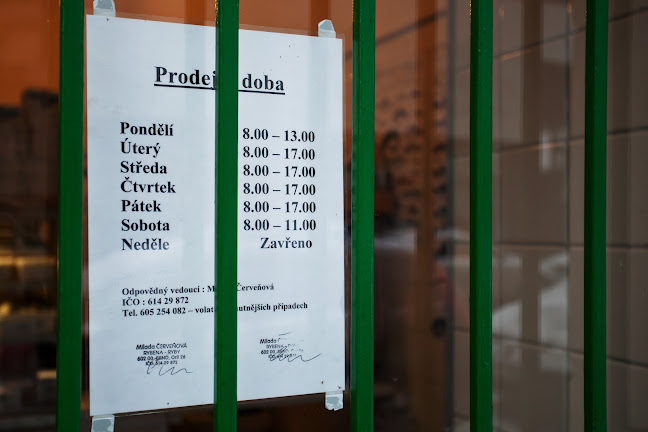 Prodej doba
Pondělí 8.00 – 13.00
Úterý 8.00 – 17.00
Středa 8.00 – 17.00
Čtvrtek 8.00 – 17.00
Pátek 8.00 – 17.00
Sobota 8.00 – 11.00
Neděle Zavřeno
Odpovědný vedoucí : M Červeňová
IČO : 614 29 872
Tel. 605 254 082 – volat utnějších případech
Milada ČERVEŇOVÁ
RYBENA - RYBY
602 00 BRNO
IČO 614 29 872
Milada ČERVEŇOVÁ
RYBENA - RYBY